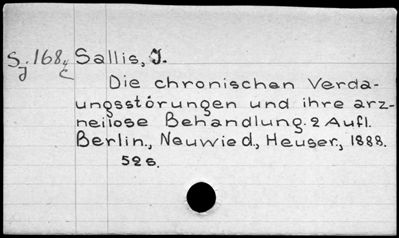 Sj 168 4/c Sallis, J.
Die chronischen Verda-
ungsstörungen und ihre arz-
neilose Behandlung. 2 Aufl.
Berlin., Neuwied., Heuser., 1888.
52 s.